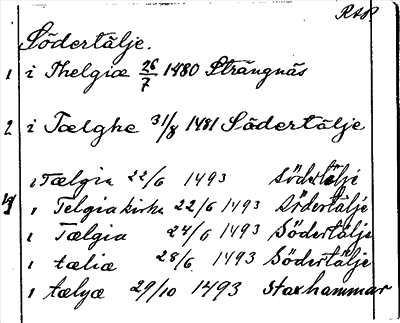 RAP
Södertälje.
1 i Thelgiæ 26/7 1480 Strängnäs
2 i Tælghe 31/8 1481 Södertälje
i Tælgia 22/6 1493 Södertälje
i Telgia kirke 22/6 1493 Södertälje
i Tælgia 24/6 1493 Södertälje
i tæliæ 28/6 1493 Södertälje
i tælyæ 29/10 1493 Staxhammar